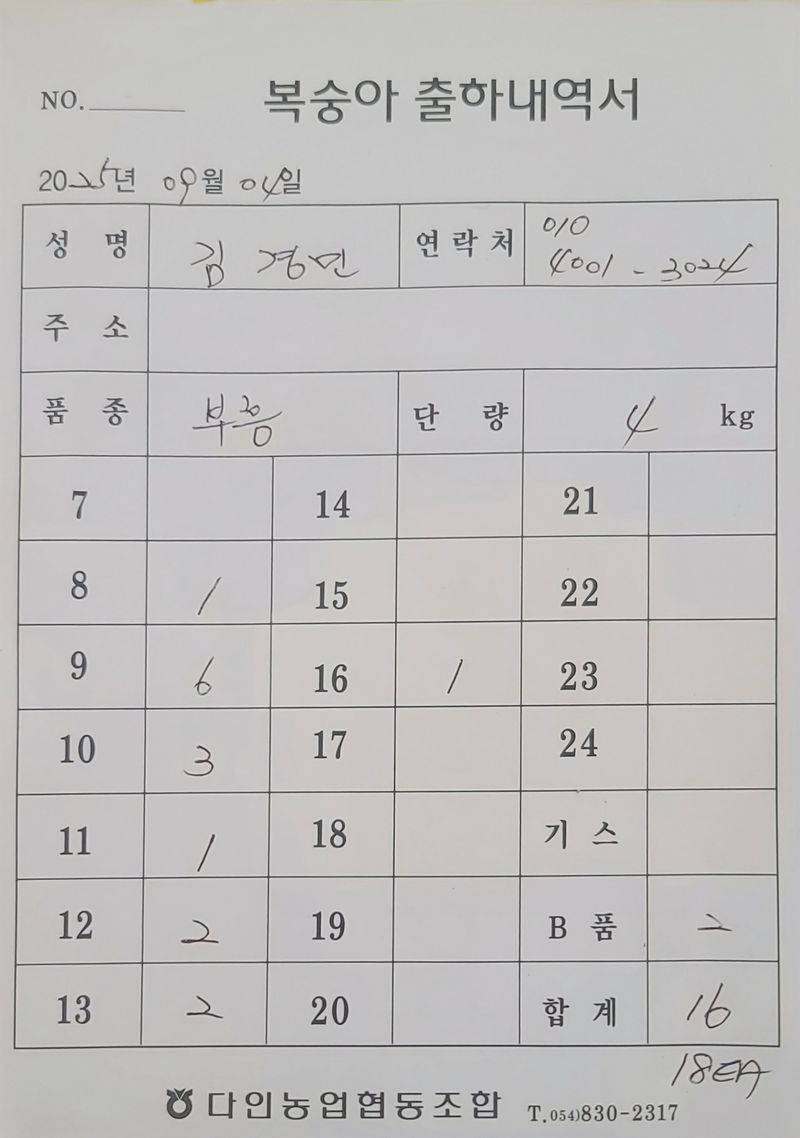 NO. 복숭아 출하내역서
2025년 09월 04일
성 명 김경민 연락처 010 4001-3024
주 소
품 종 부흥 단 량 4 kg
7 14 21
8 1 15 22
9 6 16 1 23
10 3 17 24
11 1 18 기 스
12 2 19 B 품 2
13 2 20 합 계 16
18EA
다인농업협동조합 T.054)830-2317